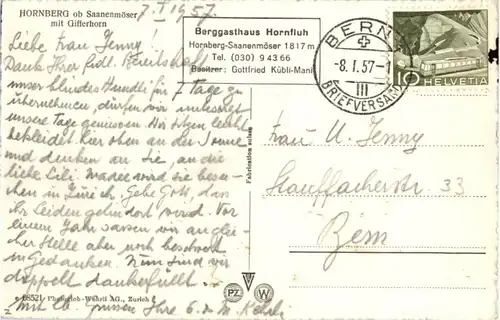 HORNBERG ob Saanenmöser
mit Gifferhorn
7. I. 1957.
Liebe Frau Jenny!
Dank Ihrer frdl. Bereitschaft
unser blindes Hundli für 7 Tage zu
übernehmen, dürfen wir unbesorgt
unsere Tage geniessen. Wir sitzen leicht
bekleidet hier oben an der Sonne
und denken an Sie, an die
liebe Lili. Madee wird sie besu-
chen in Zürich. Gebe Gott, dass
ihr Leiden gelindert wird. Vor
einem Jahr sassen wir an glei-
cher Stelle aber noch beschwert
in Gedanken. Nun sind wir
doppelt dankerfüllt.
Mit lb. Grüssen Ihre
Berggasthaus Hornfluh
Hornberg-Saanenmöser 1817 m
Tel. (030) 9 43 66
Besitzer: Gottfried Kübli-Mani
BERN
-8.I.57-1
III
BRIEFVERSAND
10 HELVETIA
Frau U. Jenny
Stauffacherstr. 33
Bern
Fabrication suisse
68521 Photogleb-Wehrli AG., Zurich
PZ W